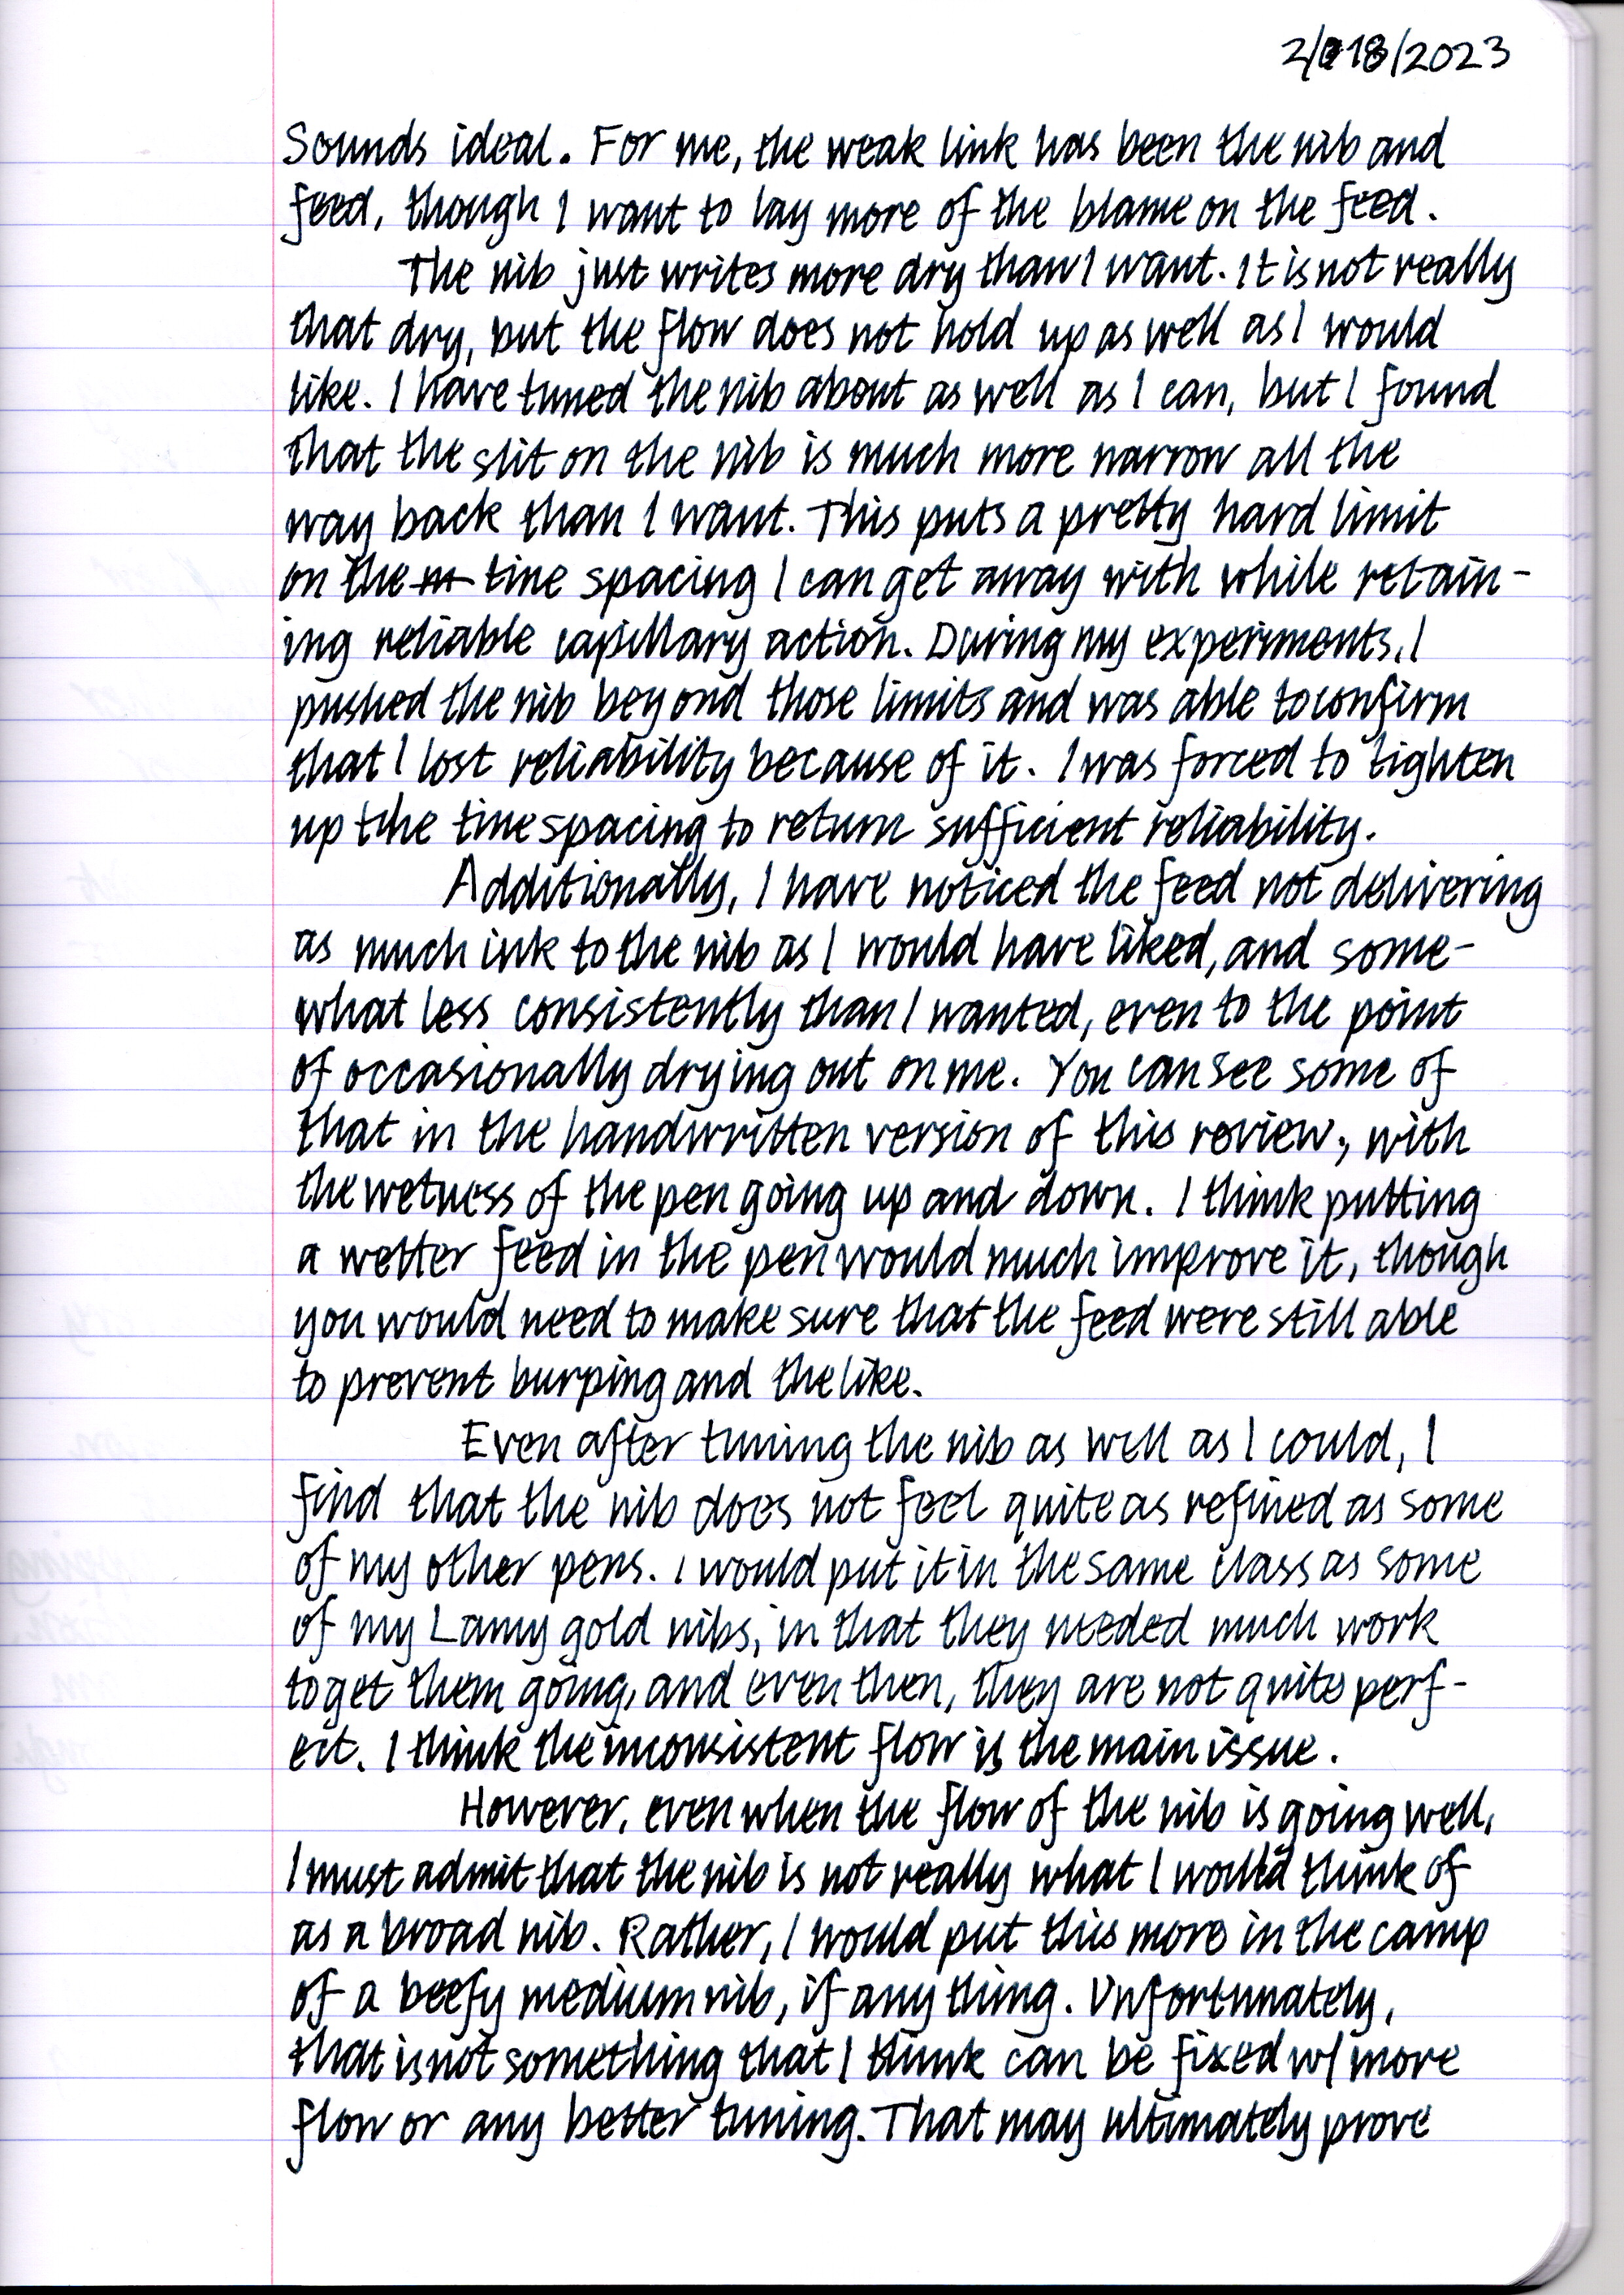 2/18/2023
Sounds ideal. For me, the weak link has been the nib and
feed, though I want to lay more of the blame on the feed.
The nib just writes more dry than I want. It is not really
that dry, but the flow does not hold up as well as I would
like. I have tuned the nib about as well as I can, but I found
that the slit on the nib is much more narrow all the
way back than I want. This puts a pretty hard limit
on the tine spacing I can get away with while retain-
ing reliable capillary action. During my experiments, I
pushed the nib beyond those limits and was able to confirm
that I lost reliability because of it. I was forced to tighten
up the tine spacing to return sufficient reliability.
Additionally, I have noticed the feed not delivering
as much ink to the nib as I would have liked, and some-
what less consistently than I wanted, even to the point
of occasionally drying out on me. You can see some of
that in the handwritten version of this review, with
the wetness of the pen going up and down. I think putting
a wetter feed in the pen would much improve it, though
you would need to make sure that the feed were still able
to prevent burping and the like.
Even after tuning the nib as well as I could, I
find that the nib does not feel quite as refined as some
of my other pens. I would put it in the same class as some
of my Lamy gold nibs, in that they needed much work
to get them going, and even then, they are not quite perf-
ect. I think the inconsistent flow is the main issue.
However, even when the flow of the nib is going well,
I must admit that the nib is not really what I would think of
as a broad nib. Rather, I would put this more in the camp
of a beefy medium nib, if anything. Unfortunately,
that is not something that I think can be fixed w/ more
flow or any better tuning. That may ultimately prove